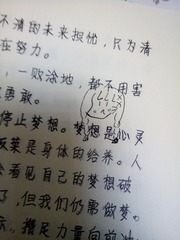 不清的未来担忧，只为清
在努力。
，一败涂地，都不用害
勇敢。
停止梦想。梦想是心灵
饭菜是身体的给养。人
会看见自己的梦想破
了，但我们仍需做梦。
示，攒足力量向前冲